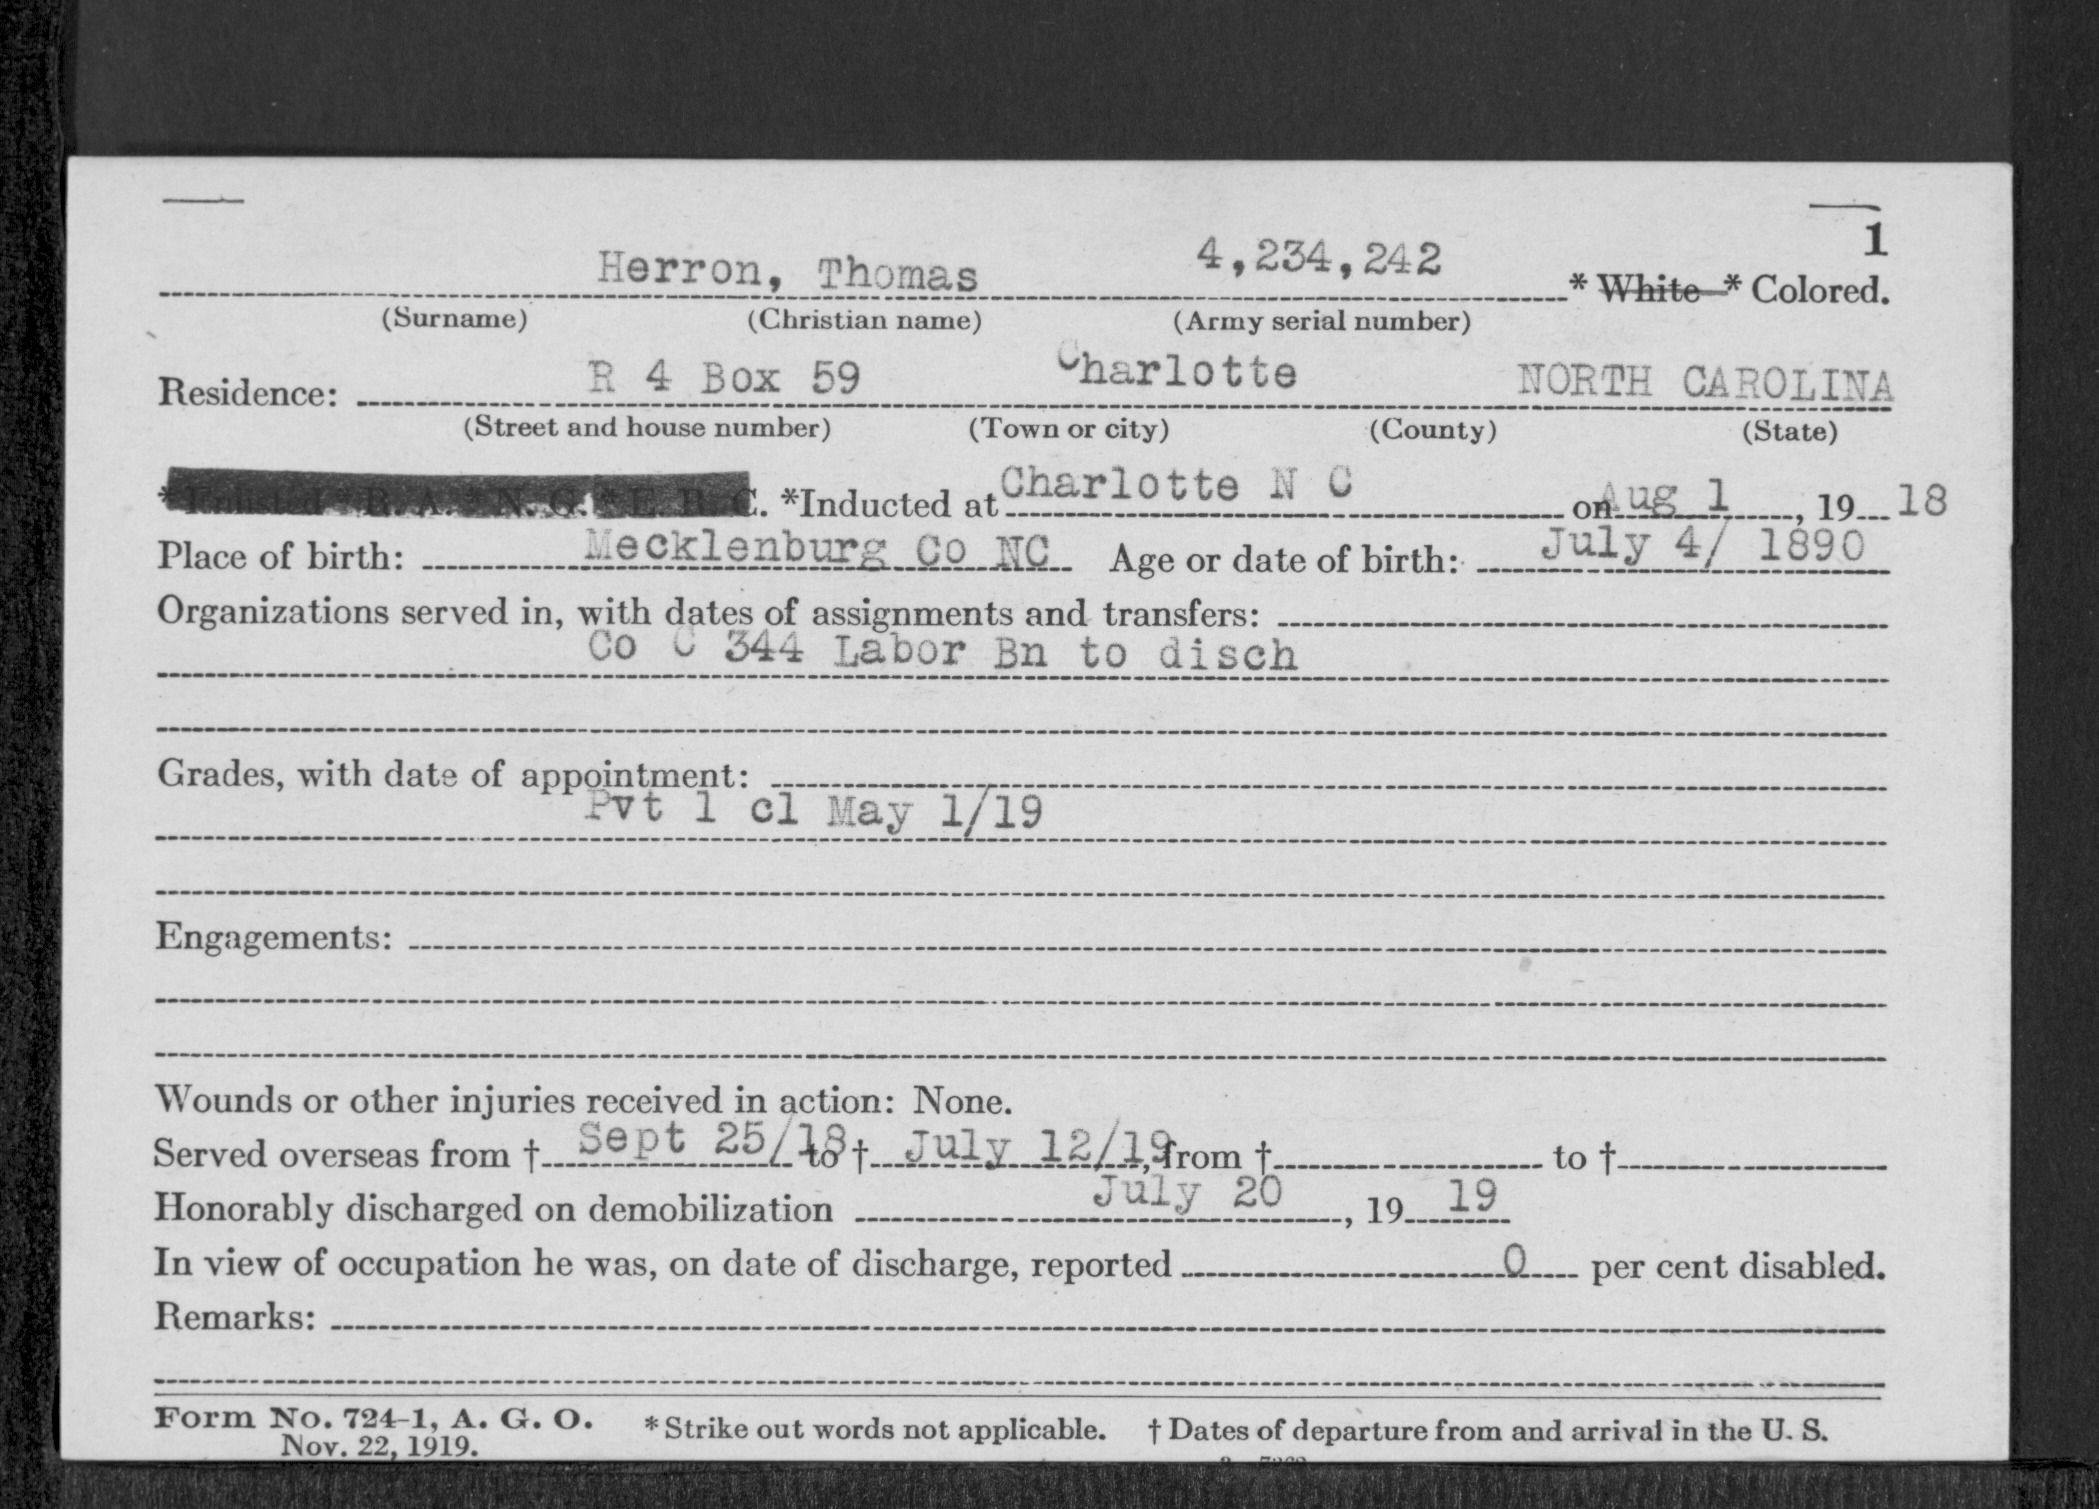 1
Herron, Thomas 4,234,242 * White * Colored.
(Surname) (Christian name) (Army serial number)
Residence: R 4 Box 59 Charlotte NORTH CAROLINA
(Street and house number) (Town or city) (County) (State)
*Enlisted *R. A. *N. G. *E. R. C. *Inducted at Charlotte N C on Aug 1, 19 18
Place of birth: Mecklenburg Co NC Age or date of birth: July 4/ 1890
Organizations served in, with dates of assignments and transfers:
Co C 344 Labor Bn to disch
Grades, with date of appointment:
Pvt 1 cl May 1/19
Engagements:
Wounds or other injuries received in action: None.
Served overseas from † Sept 25/18 to † July 12/19, from † to †
Honorably discharged on demobilization July 20, 19 19
In view of occupation he was, on date of discharge, reported 0 per cent disabled.
Remarks:
Form No. 724-1, A. G. O. * Strike out words not applicable. † Dates of departure from and arrival in the U. S.
Nov. 22, 1919.